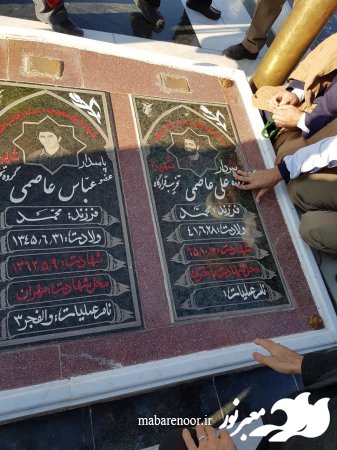 پاسدار
علی عاصمی
فرزند: محمد
ولادت: ۴۱،۶،۲۸
شهادت:
محل شهادت: باختران
نام عملیات:
پاسدار
عباس عاصمی
فرزند: محمد
ولادت: ۱۳۴۵،۶،۳۱
شهادت: ۱۳۶۲،۵،۹
محل شهادت: مهران
نام عملیات: والفجر ۳
معبر نور
mabarenoor.ir